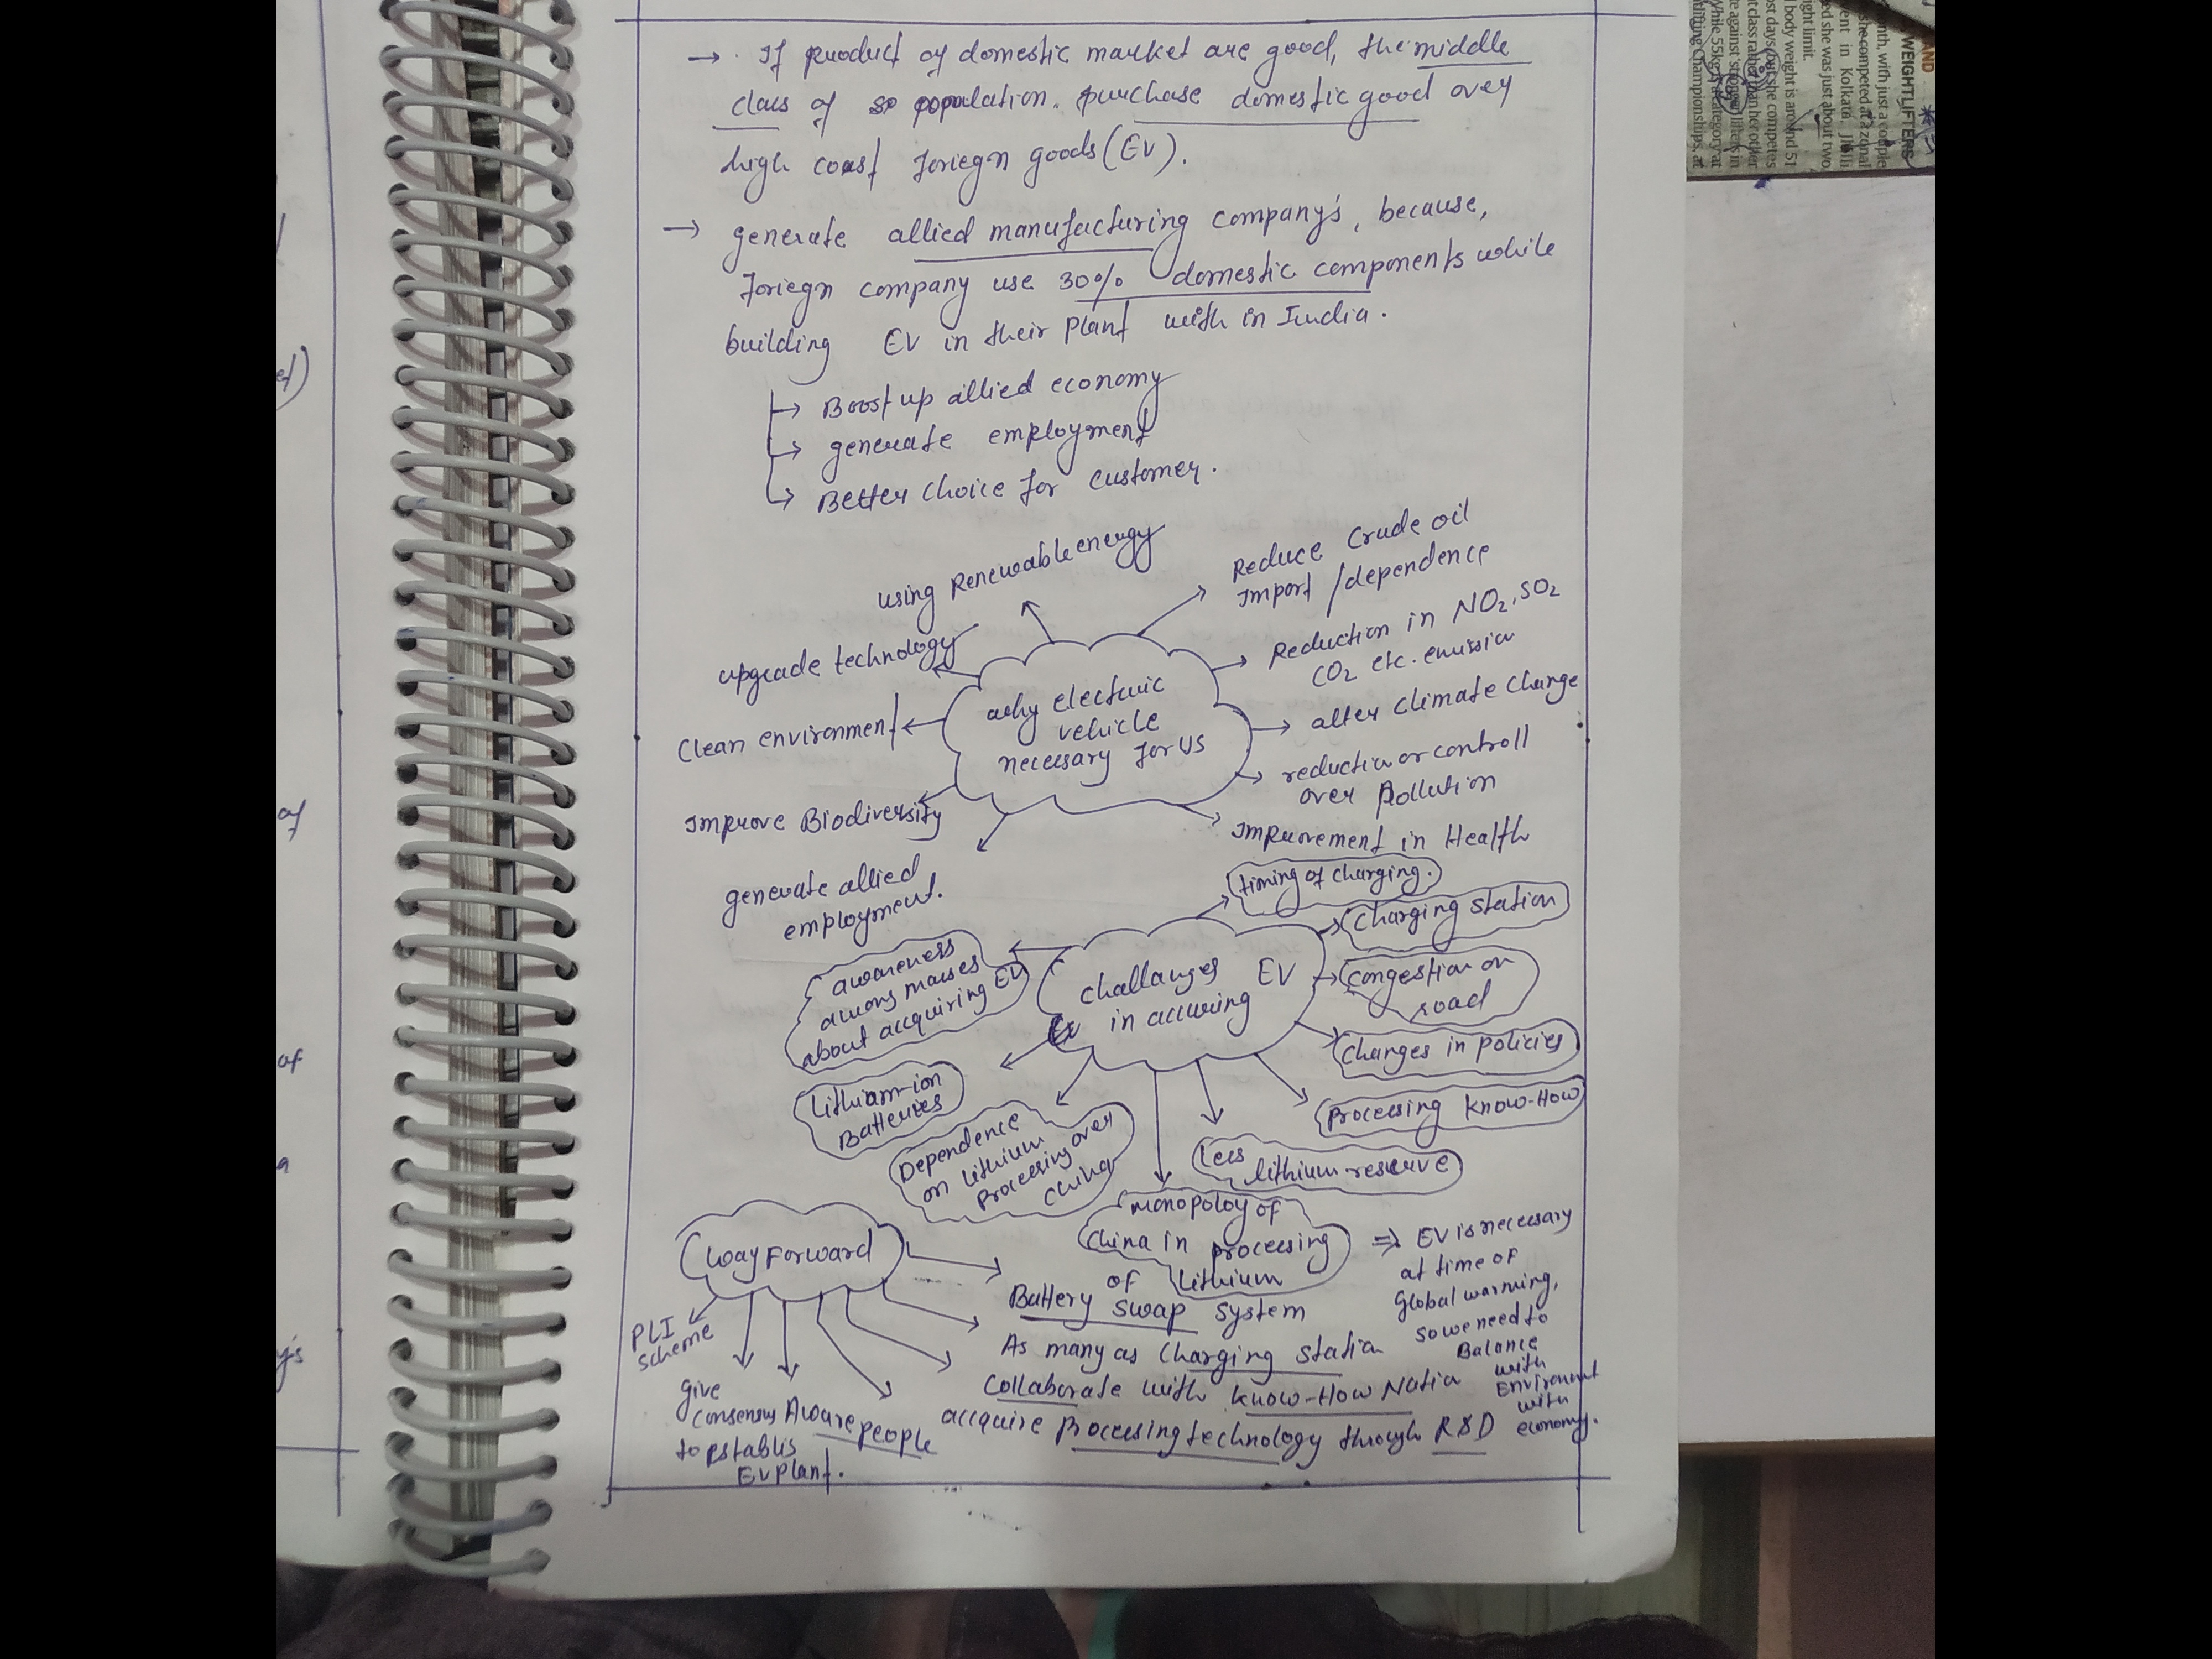 → . If product of domestic market are good, the middle
class of so population. purchase domestic good over
high coast foriegn goods (EV).
→ generate allied manufacturing company's, because,
foriegn company use 30% domestic components while
building EV in their plant with in India.
→ Boost up allied economy
→ generate employment
→ Better choice for customer.
using Renewable energy
Reduce Crude oil
Import / dependence
upgrade technology
Reduction in NO2, SO2
CO2 etc. emission
why electric
vehicle
necessary for us
Clean environment
alter climate change
reduction or controll
over Pollution
Improve Biodiversity
Improvement in Health
generate allied
employment.
timing of charging.
Charging station
challanges EV
in accuring
awareness
among masses
about accquiring EV
Congestion on
road
Changes in policies
Lithium-ion
Batteries
Processing know-How
Dependence
on lithium
Processing over
China
less
lithium reserve
monopoloy of
China in processing
of Lithium
way Forward
PLI
scheme
give
consensus
to establis
EV plant.
Aware people
Battery swap system
As many as Charging station
Collaborate with know-How Nation
accquire processing technology through R&D
⇒ EV is necessary
at time of
Global warming,
so we need to
Balance
with
Enviroment
with
economy.
AND
WEIGHTLIFTERS
onth, with just a couple
she competed at a zonal
vent in Kolkata. Jhilli
ed she was just about two
ight limit.
body weight is around 51
ost days, but she competes
t class rather than her other
e against stronger lifters in
While 55kg
ategory at
Championships, at
of
of
a
y's